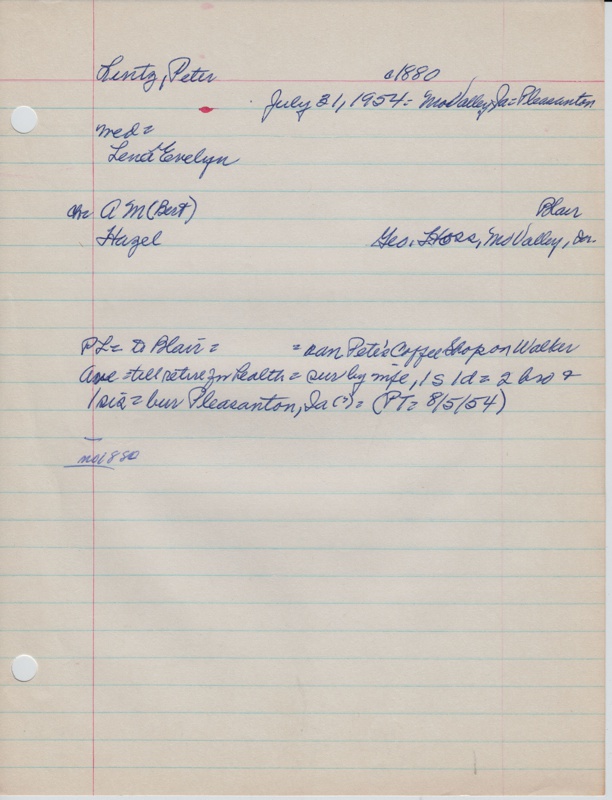 Lentz, Peter a1880
July 31, 1954 = MoValley, Ia = Pleasanton
med =
Lena Evelyn
ch = A M (Bert) Blair
Hazel Geo. Hoss, MoValley, Ia.
PL = to Blair = = ran Pete's Coffee Shop on Walker
Ave = till retire for health = sur by wife, 1 s 1 d = 2 bro &
1 sis = bur Pleasanton, Ia (?) = (PT = 8/5/54)
no 1880